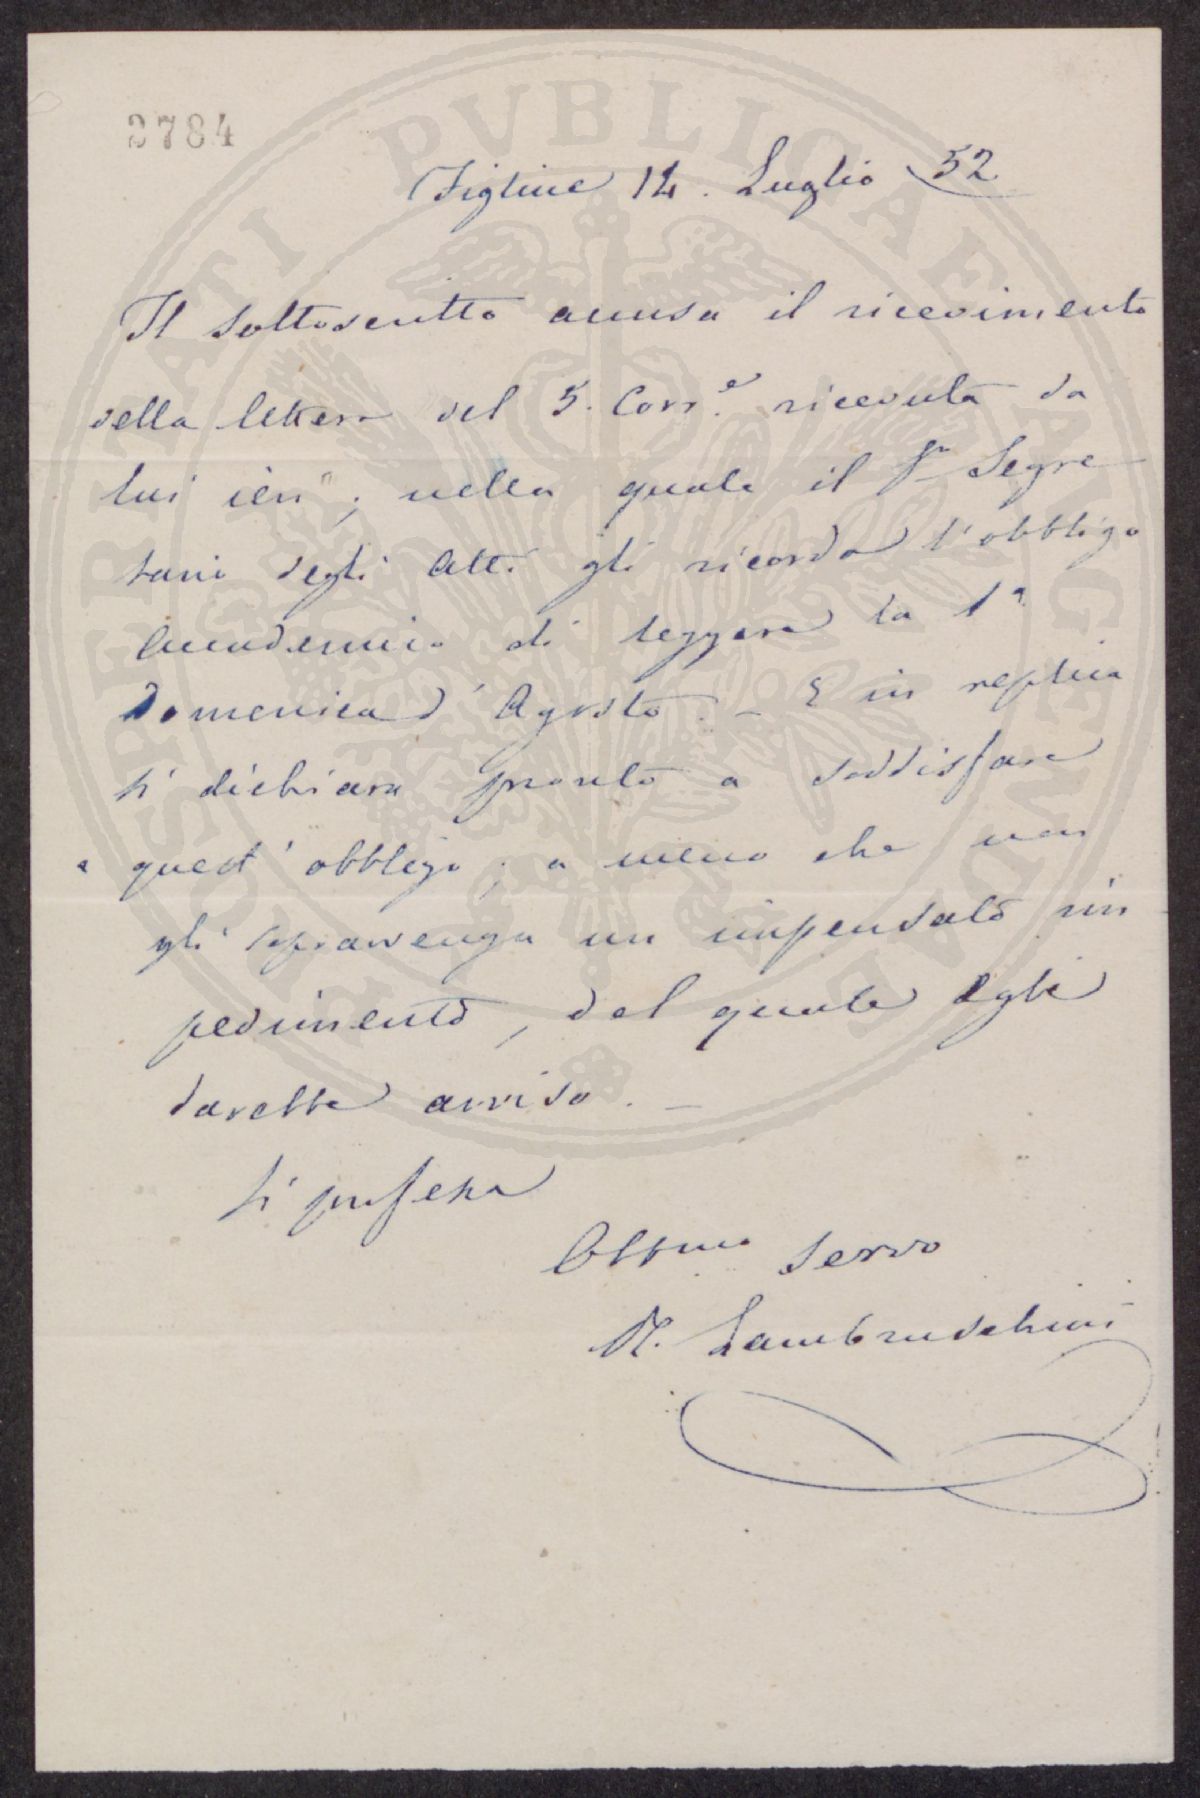 2784
PROSPERITATI PVBLICAE AVGENDAE
Figline 14. Luglio 52
Il sottoscritto accusa il ricevimento
della lettera del 5. Corr.e ricevuta da
lui ieri; nella quale il Sr Segre
tario degli Atti gli ricorda l'obbligo
Accademico di leggere la 1a
Domenica d'Agosto. _ E in replica
si dichiara pronto a soddisfare
a quest'obbligo; a meno che non
gli sopravvenga un impensato im
pedimento, del quale egli
darebbe avviso. _
Si professa
Obbmo Servo
R. Lambruschini